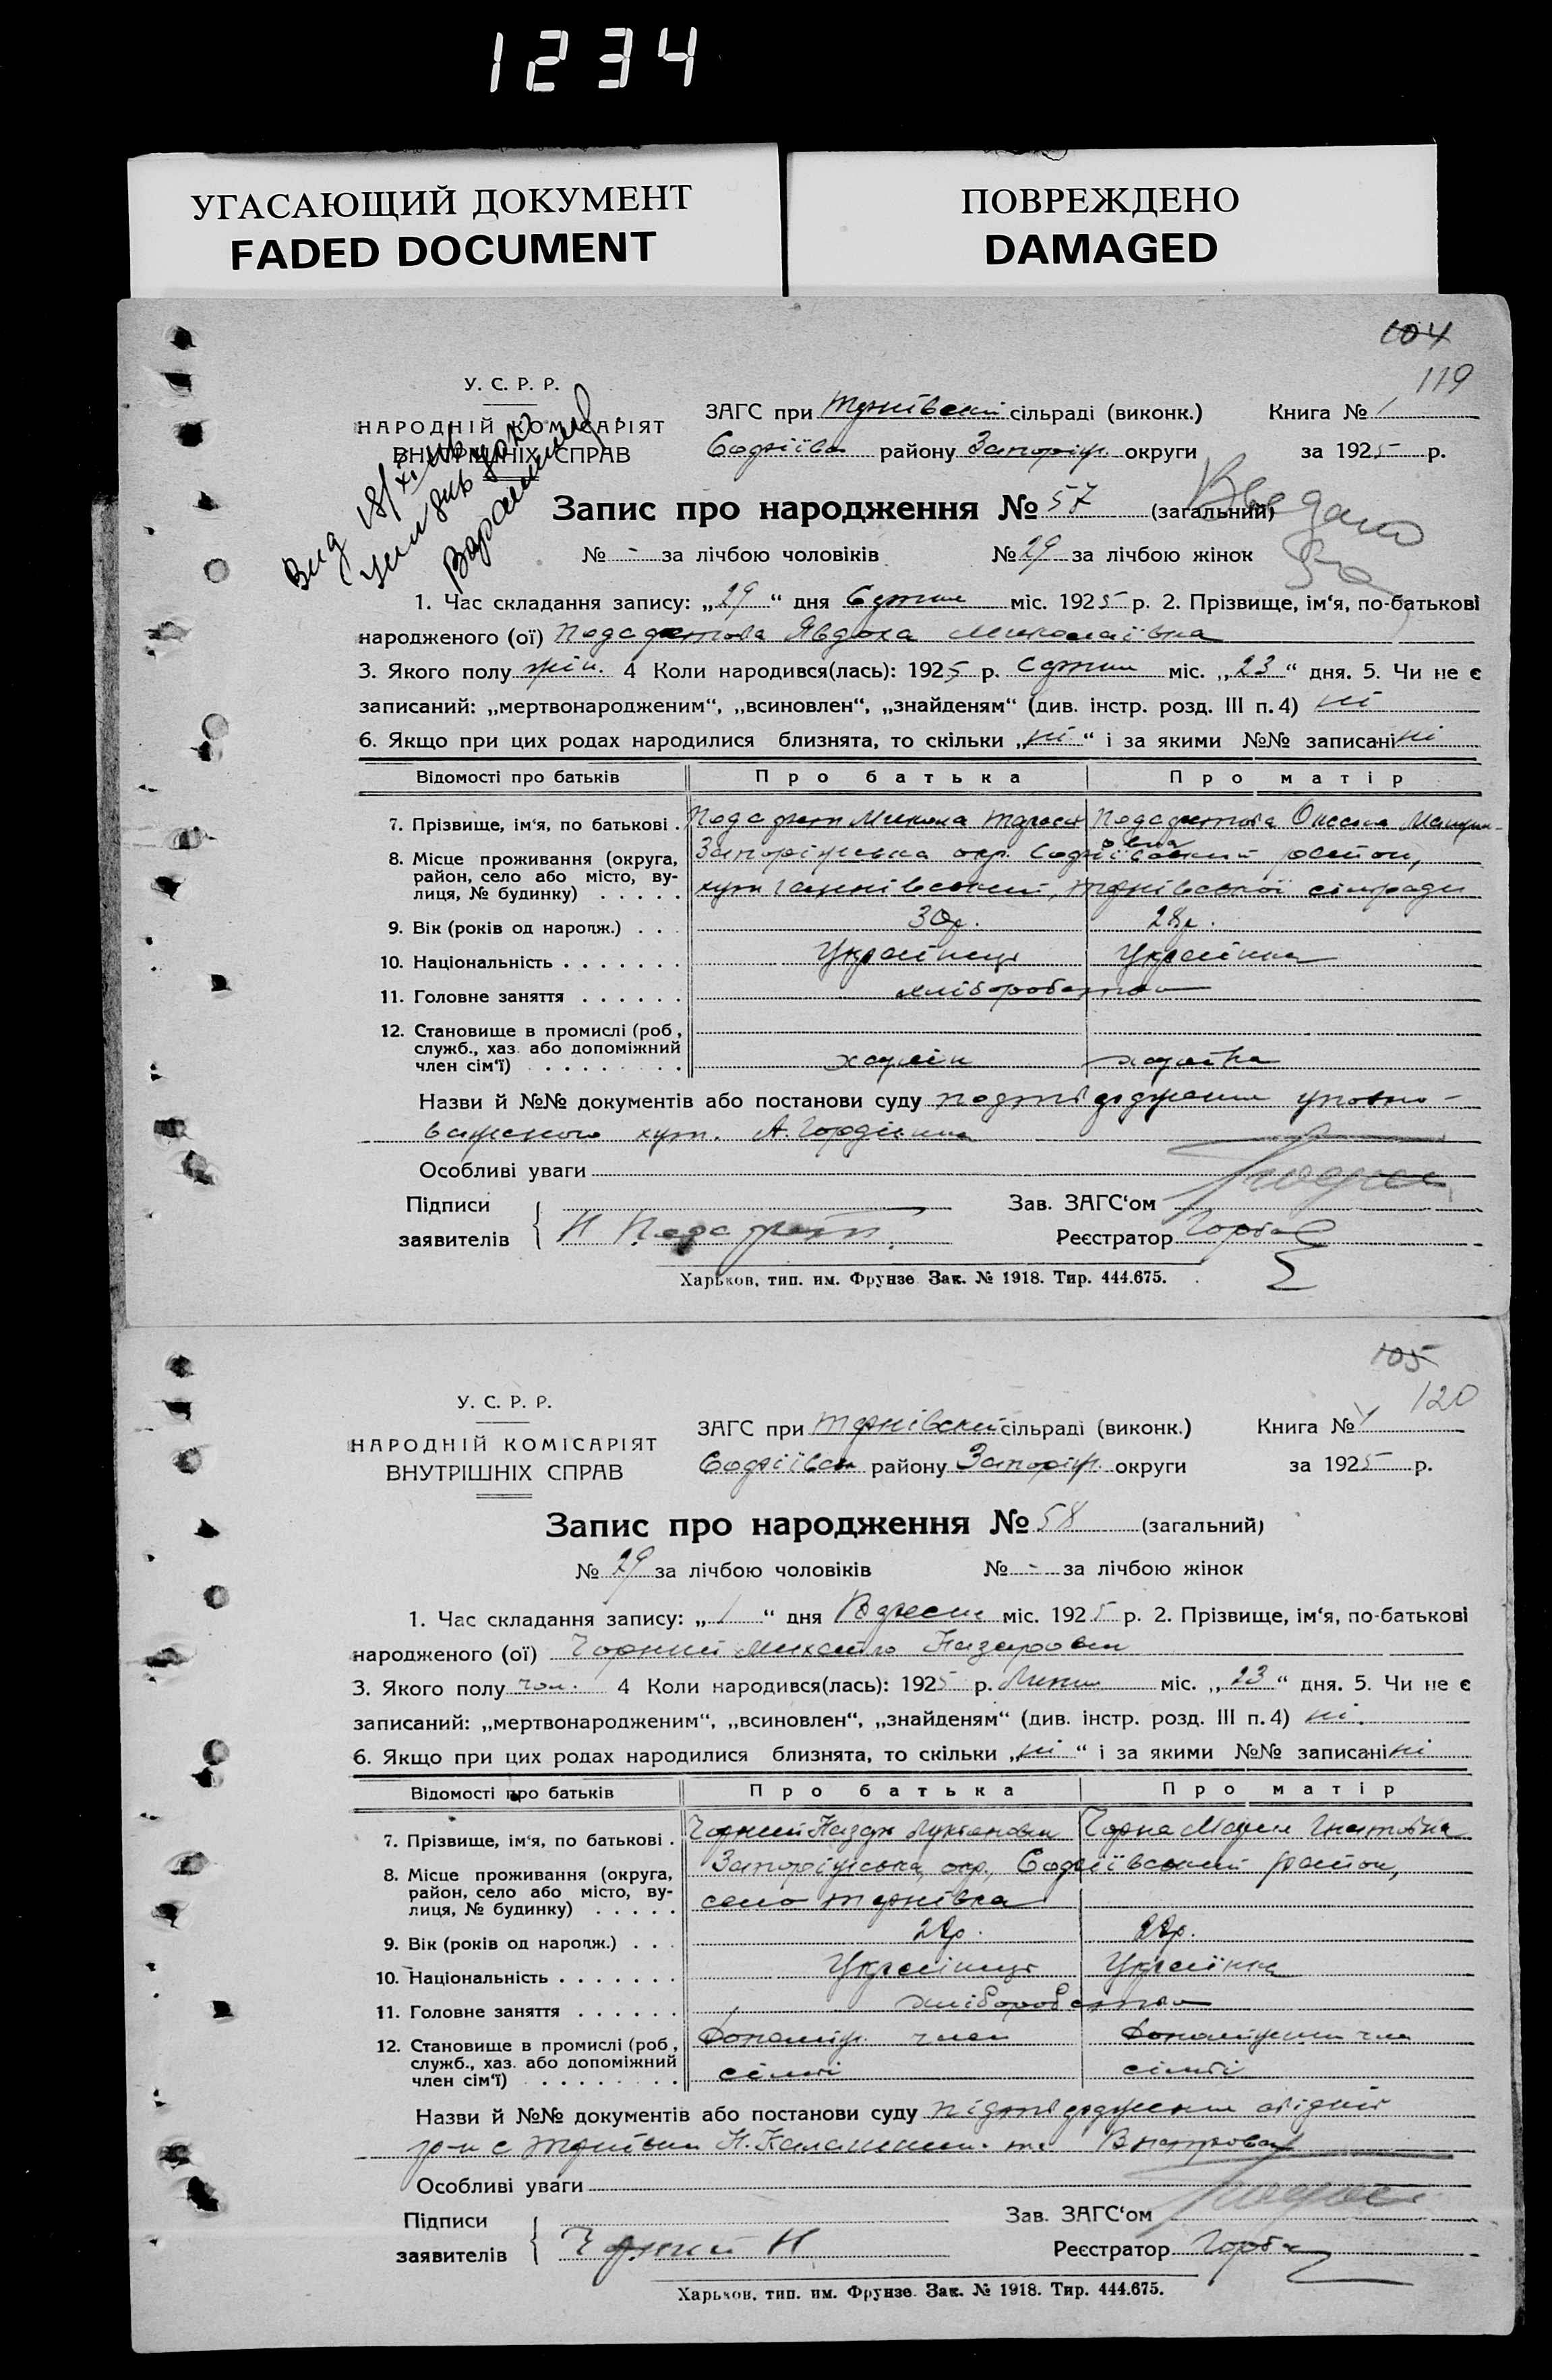 1234
УГАСАЮЩИЙ ДОКУМЕНТ
FADED DOCUMENT
ПОВРЕЖДЕНО
DAMAGED
104
119
У. С. Р. Р.
НАРОДНІЙ КОМІСАРІЯТ
ВНУТРІШНІХ СПРАВ
ЗАГС при Тернівській сільраді (виконк.) Книга № 1
Софіївськ району Запоріж. округи за 1925 р.
Запис про народження № 57 (загальний)
№ - за лічбою чоловіків № 29 за лічбою жінок
1. Час складання запису: „29“ дня Серпня міс. 1925 р. 2. Прізвище, ім‘я, по-батькові
народженого (ої) Явдоха Миколаївна
3. Якого полу жін. 4 Коли народився(лась): 1925 р. Серпня міс. „23“ дня. 5. Чи не є
записаний: „мертвонародженим“, „всиновлен“, „знайденям“ (див. інстр. розд. III п. 4) ні
6. Якщо при цих родах народилися близнята, то скільки „ні“ і за якими №№ записані ні
Відомості про батьків Про батька Про матір
7. Прізвище, ім‘я, по батькові . Микола Тарасов Оксана
8. Місце проживання (округа, район, село або місто, вулиця, № будинку) . . . . . Запоріжська окр. Софіївський район,
хут. Ганнівський, Тернівської сільради
9. Вік (років од нарοдж.) . . . 30р. 28р.
10. Національність . . . . . . . Українець Українка
11. Головне заняття . . . . . . хліборобство
12. Становище в промислі (роб., служб., хаз. або допоміжний член сім‘ї) . . . . . . . . хазяїн хазяйка
Назви й №№ документів або постанови суду
хут. А. Гордієнка
Особливі уваги
Підписи
заявителів Н
Зав. ЗАГС‘ом
Реєстратор Горба
Харьков, тип. им. Фрунзе. Зак. № 1918. Тир. 444.675.
105
120
У. С. Р. Р.
НАРОДНІЙ КОМІСАРІЯТ
ВНУТРІШНІХ СПРАВ
ЗАГС при Тернівській сільраді (виконк.) Книга № 1
Софіївськ району Запоріж. округи за 1925 р.
Запис про народження № 58 (загальний)
№ 29 за лічбою чоловіків № - за лічбою жінок
1. Час складання запису: „1“ дня Вересня міс. 1925 р. 2. Прізвище, ім‘я, по-батькові
народженого (ої) Чорний Михайло Назарович
3. Якого полу чол. 4 Коли народився(лась): 1925 р. Липня міс. „23“ дня. 5. Чи не є
записаний: „мертвонародженим“, „всиновлен“, „знайденям“ (див. інстр. розд. III п. 4) ні.
6. Якщо при цих родах народилися близнята, то скільки „ні“ і за якими №№ записані ні
Відомості про батьків Про батька Про матір
7. Прізвище, ім‘я, по батькові . Чорний Назар Лук'янович Чорна Мария Гнатівна
8. Місце проживання (округа, район, село або місто, вулиця, № будинку) . . . . . Запоріжська, окр., Софіївський район,
село Тернівка
9. Вік (років од нарοдж.) . . .
10. Національність . . . . . . . Українець Українка
11. Головне заняття . . . . . . хліборобство
12. Становище в промислі (роб., служб., хаз. або допоміжний член сім‘ї) . . . . . . . . Допоміж. член сімьї Допоміжний член сімьї
Назви й №№ документів або постанови суду
гр-н с Тернівки
Особливі уваги
Підписи
заявителів Чорний Н
Зав. ЗАГС‘ом
Реєстратор Горба
Харьков, тип. им. Фрунзе. Зак. № 1918. Тир. 444.675.